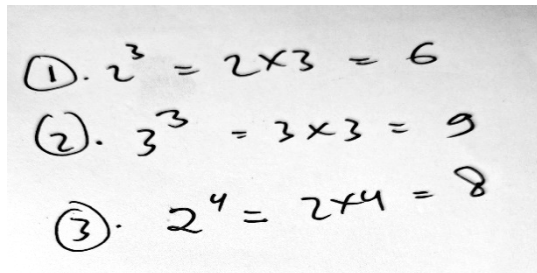 ①. 2³ = 2×3 = 6
②. 3³ = 3×3 = 9
③. 2⁴ = 2×4 = 8